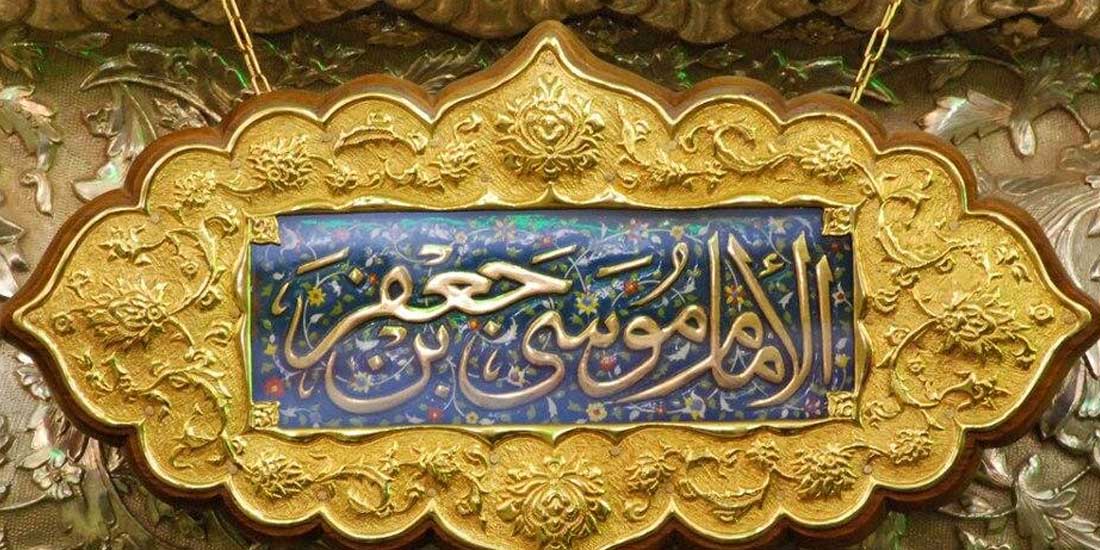 الإمام موسى بن جعفر